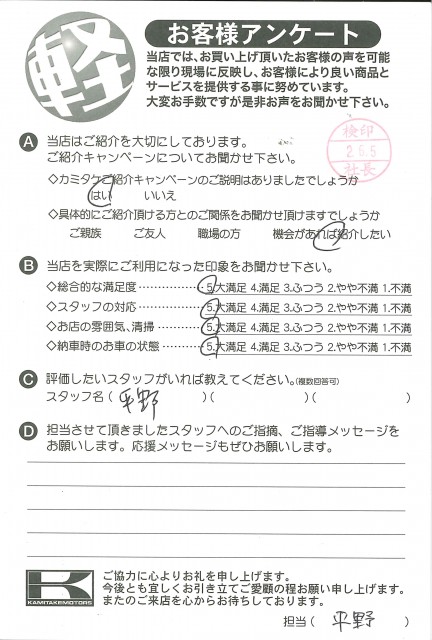 軽
お客様アンケート
当店では、お買い上げ頂いたお客様の声を可能
な限り現場に反映し、お客様により良い商品と
サービスを提供する事に努めています。
大変お手数ですが是非お声をお聞かせ下さい。
検印
2.6.5
社長
A 当店はご紹介を大切にしております。
ご紹介キャンペーンについてお聞かせ下さい。
◇カミタケご紹介キャンペーンのご説明はありましたでしょうか
はい いいえ
◇具体的にご紹介頂ける方とのご関係をお聞かせ頂けますでしょうか
ご親族 ご友人 職場の方 機会があれば紹介したい
B 当店を実際にご利用になった印象をお聞かせ下さい。
◇総合的な満足度……………5.大満足 4.満足 3.ふつう 2.やや不満 1.不満
◇スタッフの対応……………5.大満足 4.満足 3.ふつう 2.やや不満 1.不満
◇お店の雰囲気、清掃………5.大満足 4.満足 3.ふつう 2.やや不満 1.不満
◇納車時のお車の状態………5.大満足 4.満足 3.ふつう 2.やや不満 1.不満
C 評価したいスタッフがいれば教えてください。(複数回答可)
スタッフ名( 平野 )( )( )
D 担当させて頂きましたスタッフへのご指摘、ご指導メッセージを
お願いします。応援メッセージもぜひお願いします。
KAMITAKEMOTORS
ご協力に心よりお礼を申し上げます。
今後とも宜しくお引き立てご愛顧の程お願い申し上げます。
またのご来店を心からお待ちしております。
担当( 平野 )